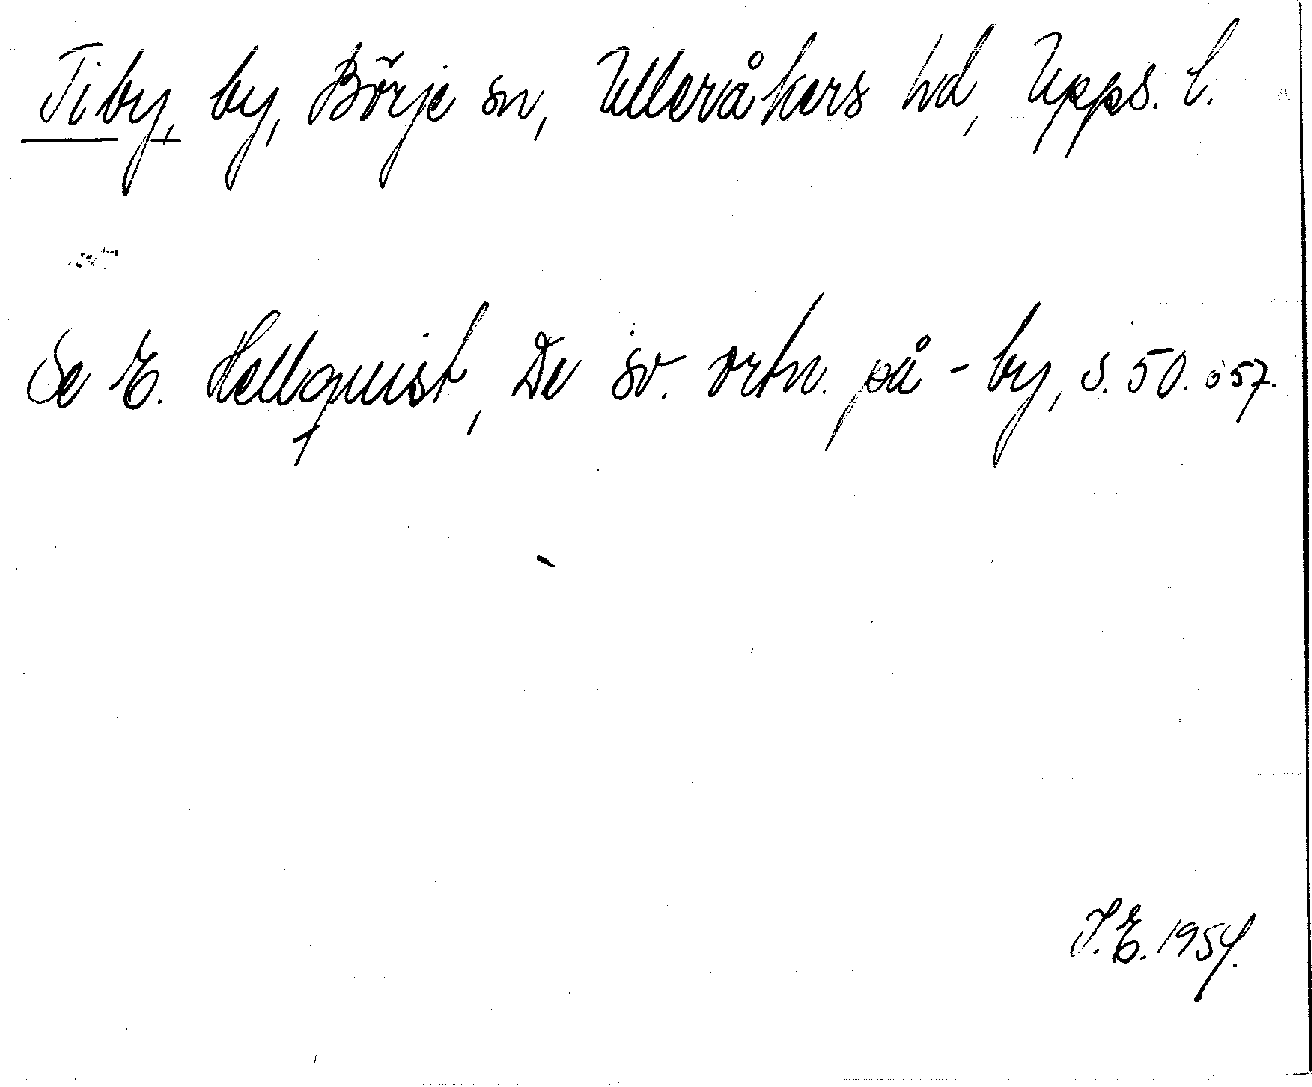 Tiby, by, Börje sn, Ulleråkers hd, Upps. l.
Se E. Hellquist, De sv. ortn. på -by, s. 50. o 57.
J.E. 1954.